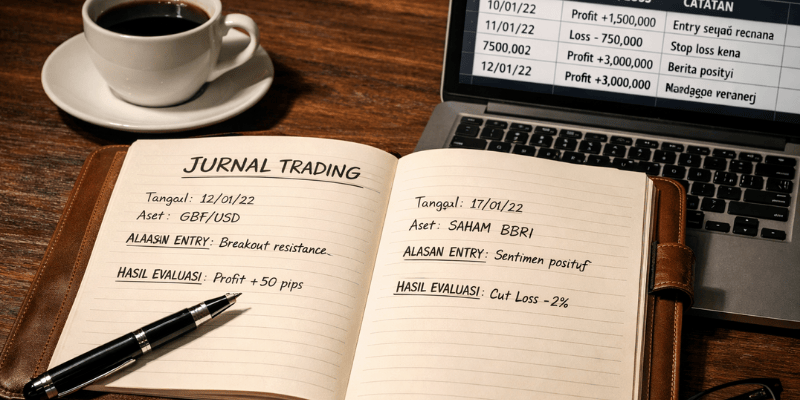 JURNAL TRADING
Tangal: 12/01/22
Aset: GBF/USD
ALAASIN ENTRY: Breakout resistance
HASIL EVALUASI: Profit +50 pips
Tangal: 17/01/22
Aset: SAHAM BBRI
ALASAN ENTRY: Sentimen posituf
HASIL EVALUASI: Cut Loss -2%
CATATAN
10/01/22 Profit +1,500,000 Entry
11/01/22 Loss - 750,000 Stop loss kena
7500.002 Profit +3,000,000 Berita posityi
12/01/22 Profit +3,000,000